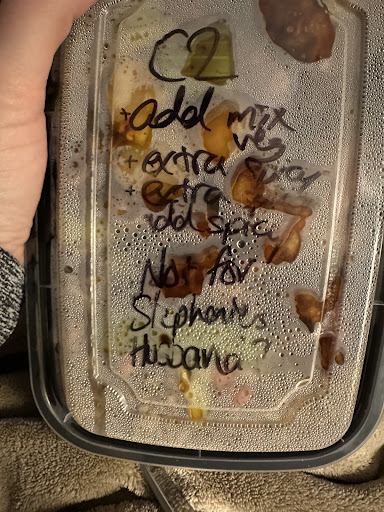 C2
+ add mix
veg
+ extra spicy
+ extra
add spic
Not for
Stephanies
Husband?